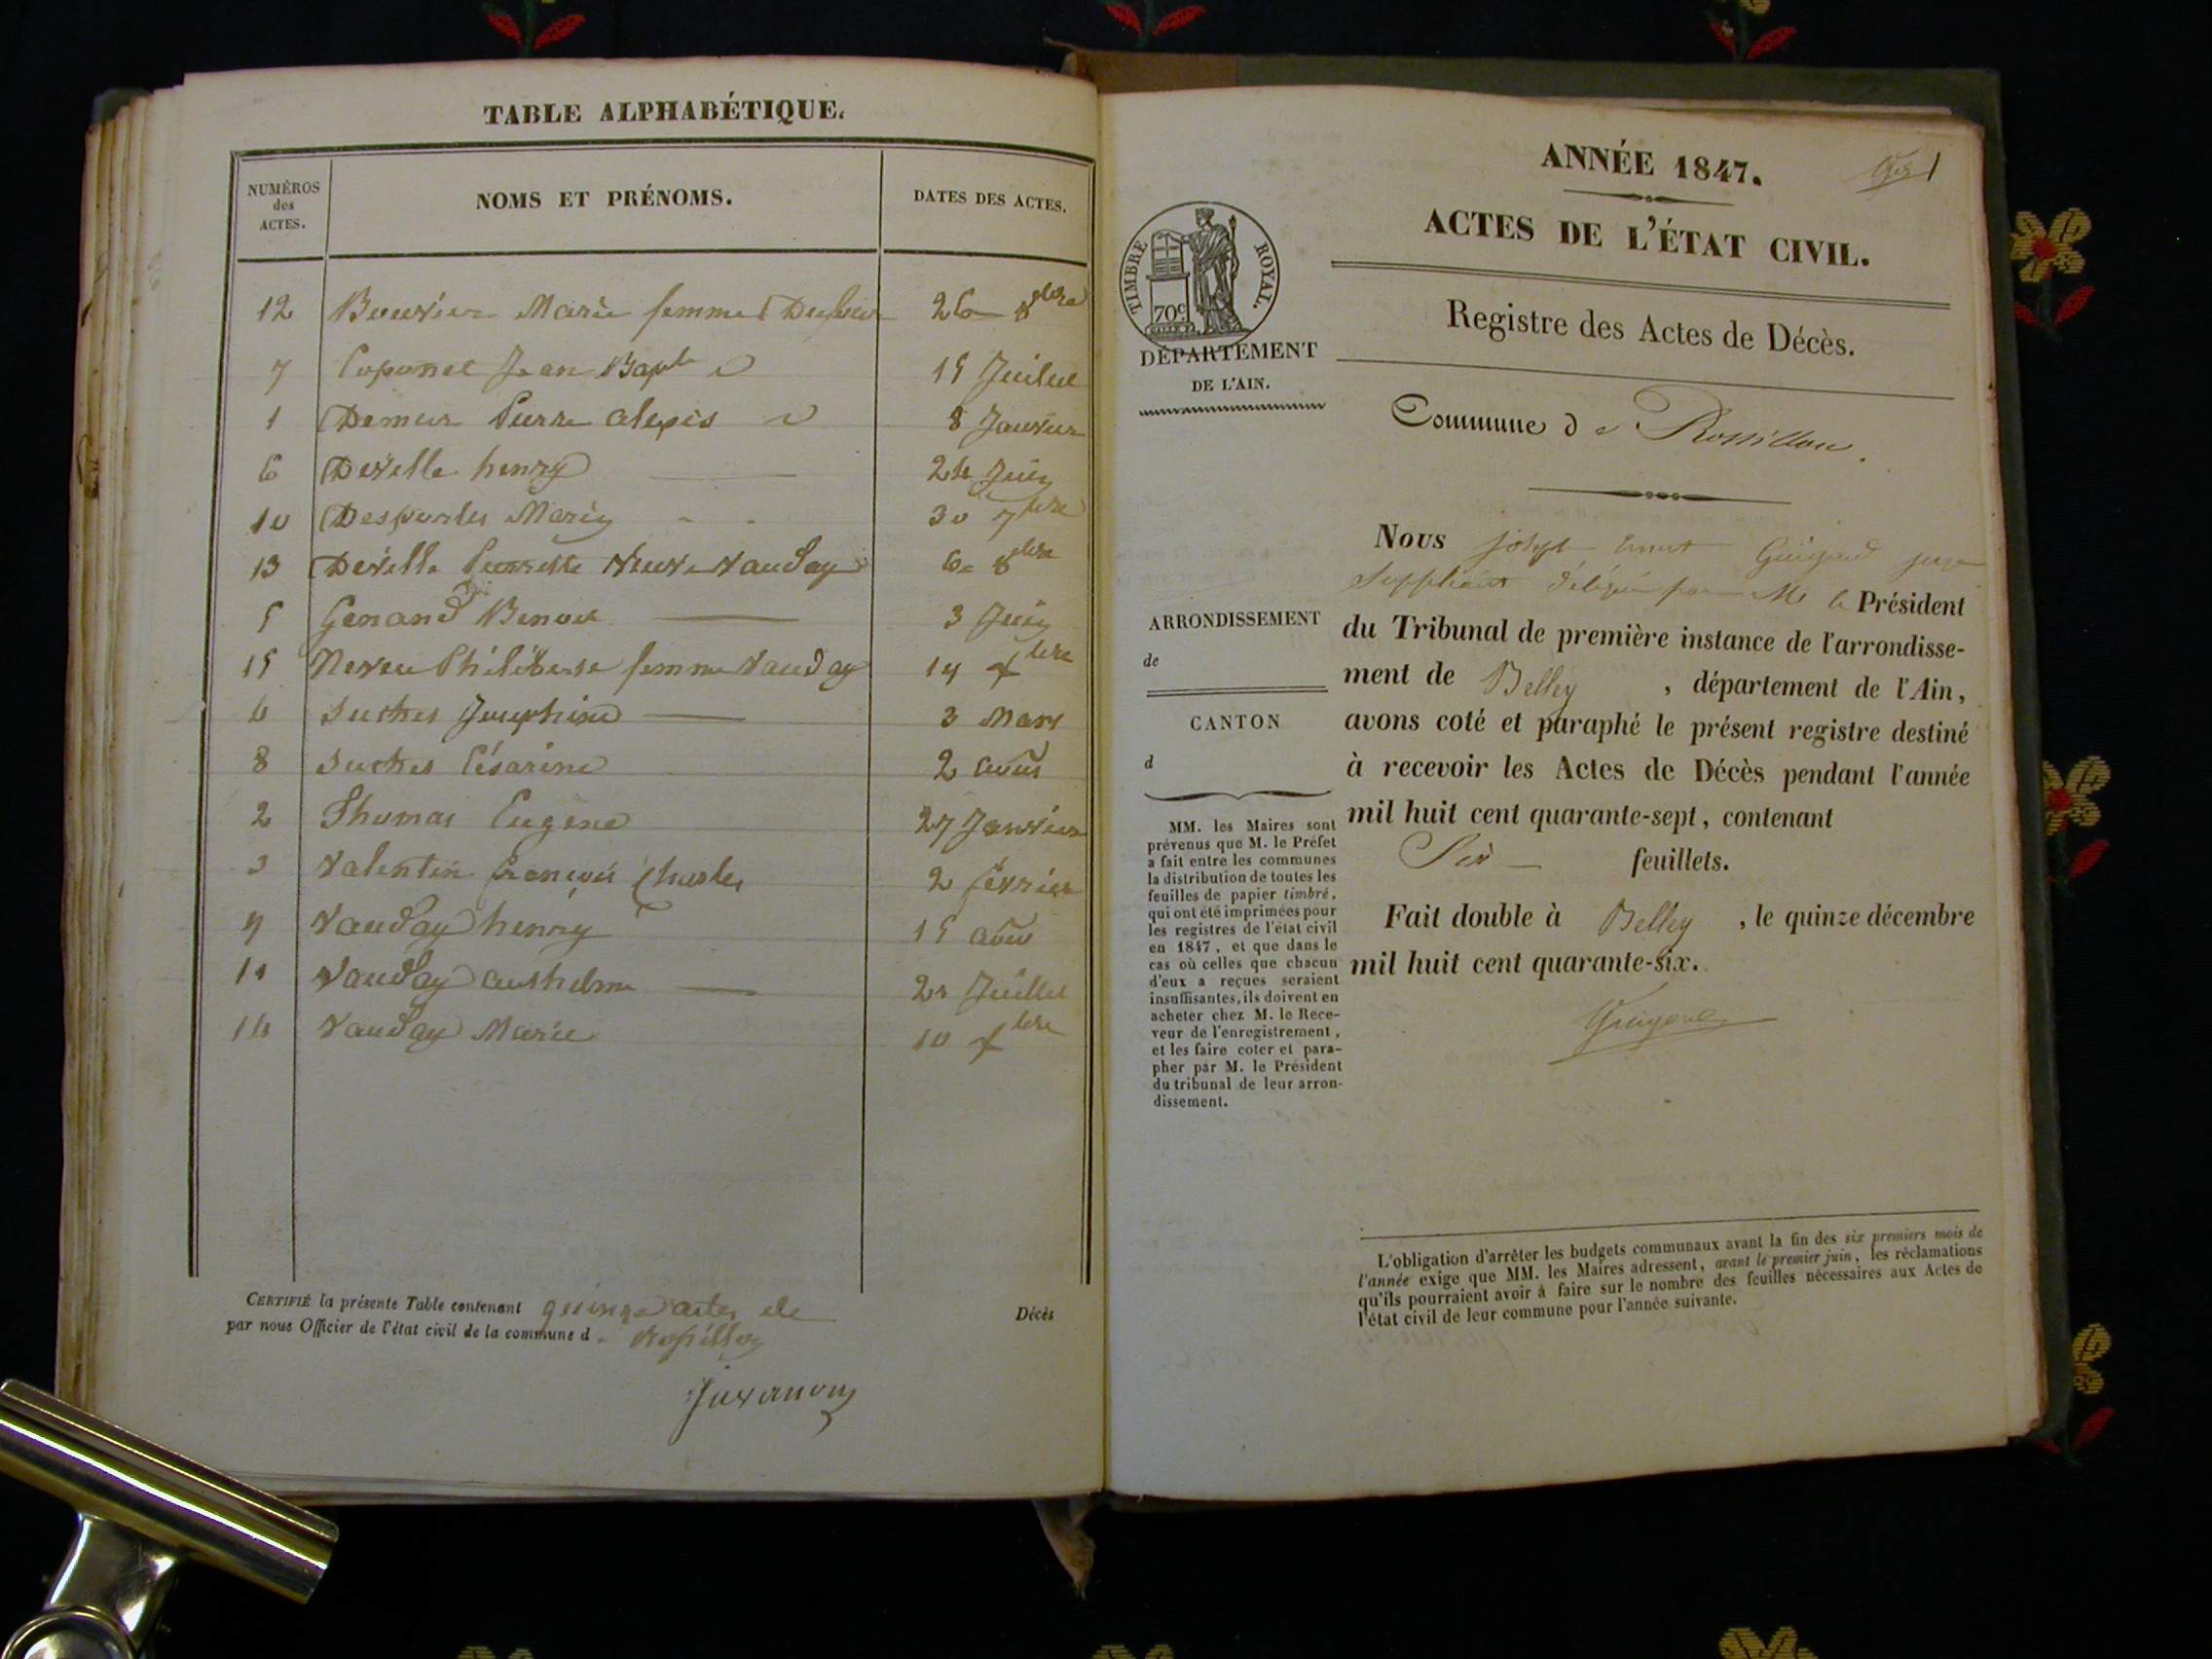 TABLE ALPHABÉTIQUE.
NUMÉROS des ACTES. NOMS ET PRÉNOMS. DATES DES ACTES.
12 Bouvier Marie femme 26 8bre
7 Coponet Jean Bapte 15 Juillet
1 Demeur Pierre alexis 8 Janvier
6 Develle henry 24 Juin
10 Desportes Marie 30 7bre
13 Develle Pierrette Veuve Vauday 6 8bre
5 Genand Benoit 3 Juin
15 Neveu Philiberte femme Vauday 14 Xbre
Suchet Josephine 3 Mars
8 Suchet Césarine 2 aout
2 Thomas Eugène 27 Janvier
3 Valentin François Charles 2 février
9 Vauday henry 15 aout
11 Vauday anthelme Juillet
14 Vauday Marie 10 Xbre
CERTIFIÉ la présente Table contenant quinze actes de Décès
par nous Officier de l'état civil de la commune de Rossillon
Juvanon
1
ANNÉE 1847.
ACTES DE L'ÉTAT CIVIL.
Registre des Actes de Décès.
TIMBRE ROYAL.
70c
DÉPARTEMENT
DE L'AIN.
Commune de Rossillon.
Nous Joseph Guigard juge
Suppléant délégué par Mr le Président
du Tribunal de première instance de l'arrondisse-
ment de Belley, département de l'Ain,
avons coté et paraphé le présent registre destiné
à recevoir les Actes de Décès pendant l'année
mil huit cent quarante-sept, contenant
Six feuillets.
Fait double à Belley, le quinze décembre
mil huit cent quarante-six.
Guigard
ARRONDISSEMENT
de
CANTON
d
MM. les Maires sont
prévenus que M. le Préfet
a fait entre les communes
la distribution de toutes les
feuilles de papier timbré,
qui ont été imprimées pour
les registres de l'état civil
en 1847, et que dans le
cas où celles que chacun
d'eux a reçues seraient
insuffisantes, ils doivent en
acheter chez M. le Rece-
veur de l'enregistrement,
et les faire coter et para-
pher par M. le Président
du tribunal de leur arron-
dissement.
L'obligation d'arrêter les budgets communaux avant la fin des six premiers mois de
l'année exige que MM. les Maires adressent, avant le premier juin, les réclamations
qu'ils pourraient avoir à faire sur le nombre des feuilles nécessaires aux Actes de
l'état civil de leur commune pour l'année suivante.